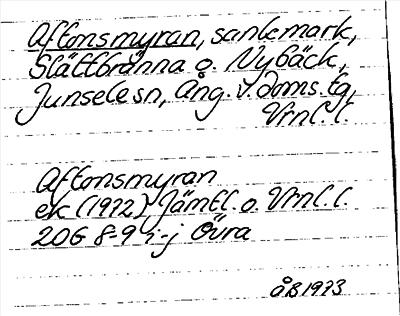 Aftonsmyran, sankmark,
Slättbränna o. Nybäck,
Junsele sn, Ång. v. doms. tg,
Vrnl. l.
Aftonsmyran
ek (1972) Jämtl. o. Vrnl. l.
20G 8-9 i-j Övra
ÅB 1973